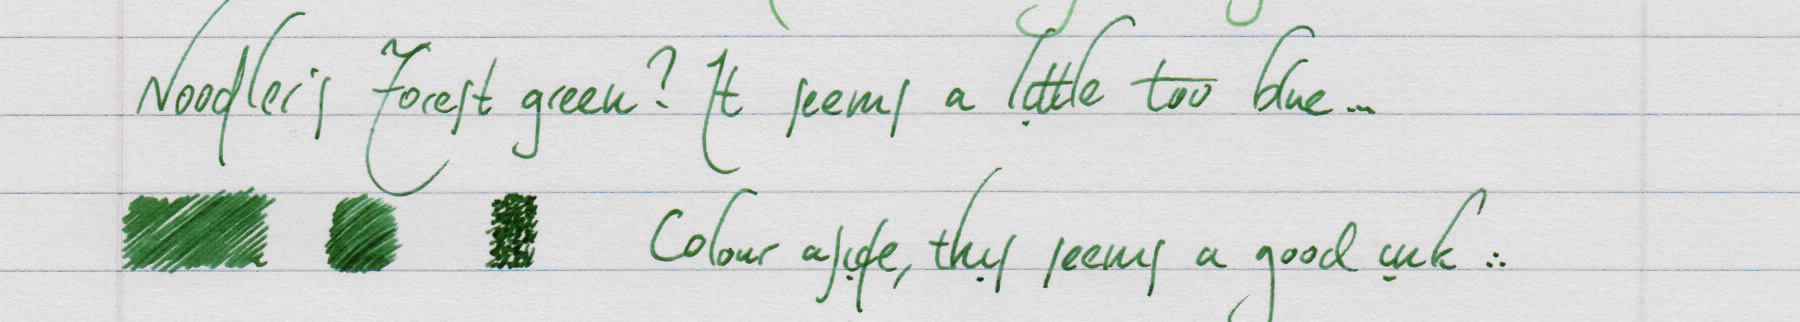 Noodler's Forest green? It seems a little too blue...
Colour aside, this seems a good ink ∴